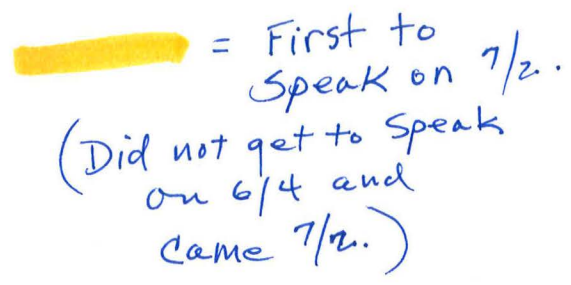 = First to
Speak on 7/2.
(Did not get to Speak
on 6/4 and
Came 7/2.)